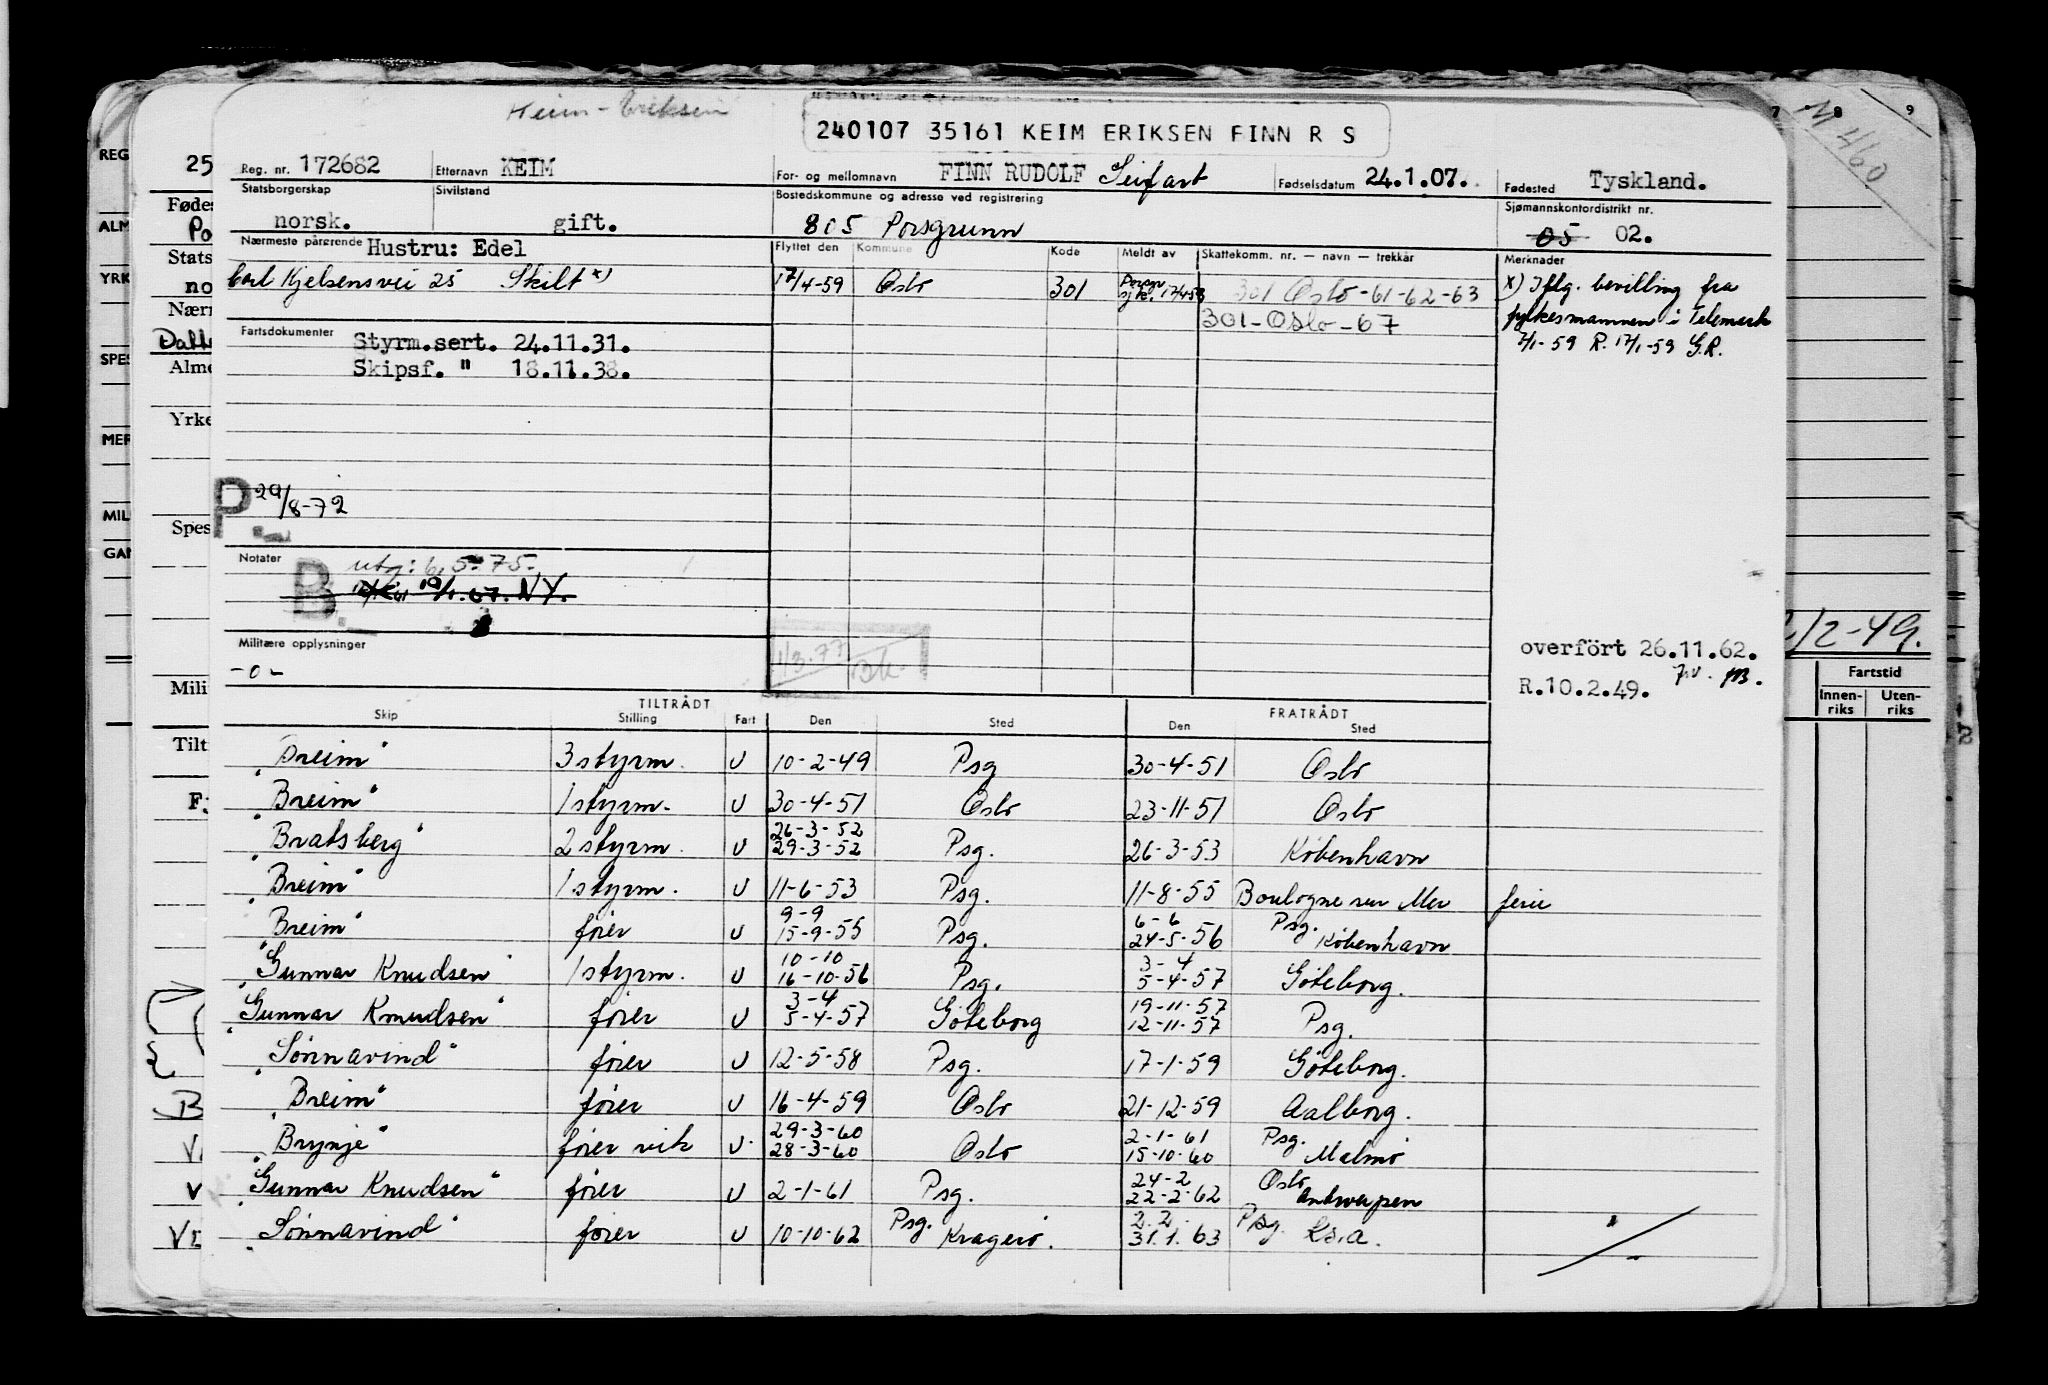 Keim-Eriksen
240107 35161 KEIM ERIKSEN FINN R S
Reg. nr. 172682 Etternavn KEIM For- og mellomnavn FINN RUDOLF Seifart Fødselsdatum 24.1.07. Fødested Tyskland.
Statsborgerskap norsk. Sivilstand gift. Bostedskommune og adresse ved registrering 805 Porsgrunn Sjømannskontordistrikt nr. 05 02.
Nærmeste pårørende Hustru: Edel
Carl Kjelsensvei 25 Skilt x)
Flyttet den Kommune Kode Meldt av Skattekomm. nr. — navn — trekkår
17/4-59 Oslo 301 Porsgr sjk. 17/4-59 301 Oslo -61-62-63
301-Oslo-67
Merknader
x) Iflg. bevilling fra
fylkesmannen i Telemark
7/1-59 R. 17/1-59 G.R.
Fartsdokumenter Styrm.sert. 24.11.31.
Skipsf. " 18.11.38.
P. 29/8-72
Notater utg: 6.5.75.
B. 19/1.67. NY.
Militære opplysninger
-o-
1/3.77
overført 26.11.62.
R.10.2.49.
TILTRÅDT FRATRÅDT
Skip Stilling Fart Den Sted Den Sted
"Breim" 3 styrm. U 10-2-49 Psg 30-4-51 Oslo
"Breim" 1 styrm. U 30-4-51 Oslo 23-11-51 Oslo
"Bratsberg" 2 styrm. U 26-3-52 29-3-52 Psg. 26-3-53 København
"Breim" 1 styrm. U 11-6-53 Psg. 11-8-55 Boulogne sur Mer ferie
"Breim" fører U 9-9 15-9-55 Psg. 6-6 24-5-56 Psg. København
"Gunnar Knudsen" 1 styrm. U 10-10 16-10-56 Psg. 3-4 5-4-57 Göteborg.
"Gunnar Knudsen" fører U 3-4 5-4-57 Göteborg 19-11-57 12-11-57 Psg.
"Sønnavind" fører U 12-5-58 Psg. 17-1-59 Göteborg.
"Breim" fører U 16-4-59 Oslo 21-12-59 Aalborg.
"Brynje" fører vik U. 29-3-60 28-3-60 Oslo 2-1-61 15-10-60 Psg. Malmö
"Gunnar Knudsen" fører U 2-1-61 Psg. 24-2 22-2-62 Oslo Antwerpen
"Sønnavind" fører U 10-10-62 Psg. Kragerø. 2.2. 31.1.63 Psg. Kr.a.
25
Fødes
Po
Stats
no
Nærn
Alme
Yrke
Spes
Mili
Tilt
REG
ALM
YRK
SPES
MER
MIL
GAN
7 8 9
M 460
/2-49.
Fartstid
Innen-riks Uten-riks